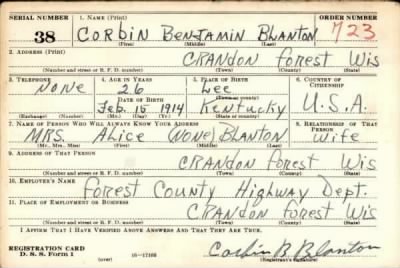 SERIAL NUMBER 1. NAME (Print) ORDER NUMBER
38 CORBIN BENJAMIN BLANTON 723
(First) (Middle) (Last)
2. ADDRESS (Print)
CRANDON Forest Wis
(Number and street or R. F. D. number) (Town) (County) (State)
3. TELEPHONE 4. AGE IN YEARS 5. PLACE OF BIRTH 6. COUNTRY OF CITIZENSHIP
NONE 26 Lee
DATE OF BIRTH (Town or county)
Feb. 15 1914 Kentucky U.S.A.
(Exchange) (Number) (Mo.) (Day) (Yr.) (State or country)
7. NAME OF PERSON WHO WILL ALWAYS KNOW YOUR ADDRESS 8. RELATIONSHIP OF THAT PERSON
MRS. Alice (NONE) BLANTON Wife
(Mr., Mrs., Miss) (First) (Middle) (Last)
9. ADDRESS OF THAT PERSON
CRANDON Forest Wis
(Number and street or R. F. D. number) (Town) (County) (State)
10. EMPLOYER'S NAME
Forest County Highway Dept.
11. PLACE OF EMPLOYMENT OR BUSINESS
CRANDON Forest Wis
(Number and street or R. F. D. number) (Town) (County) (State)
I AFFIRM THAT I HAVE VERIFIED ABOVE ANSWERS AND THAT THEY ARE TRUE.
REGISTRATION CARD
D. S. S. Form 1 (over) 16—17105 Corbin B Blanton
(Registrant's signature)